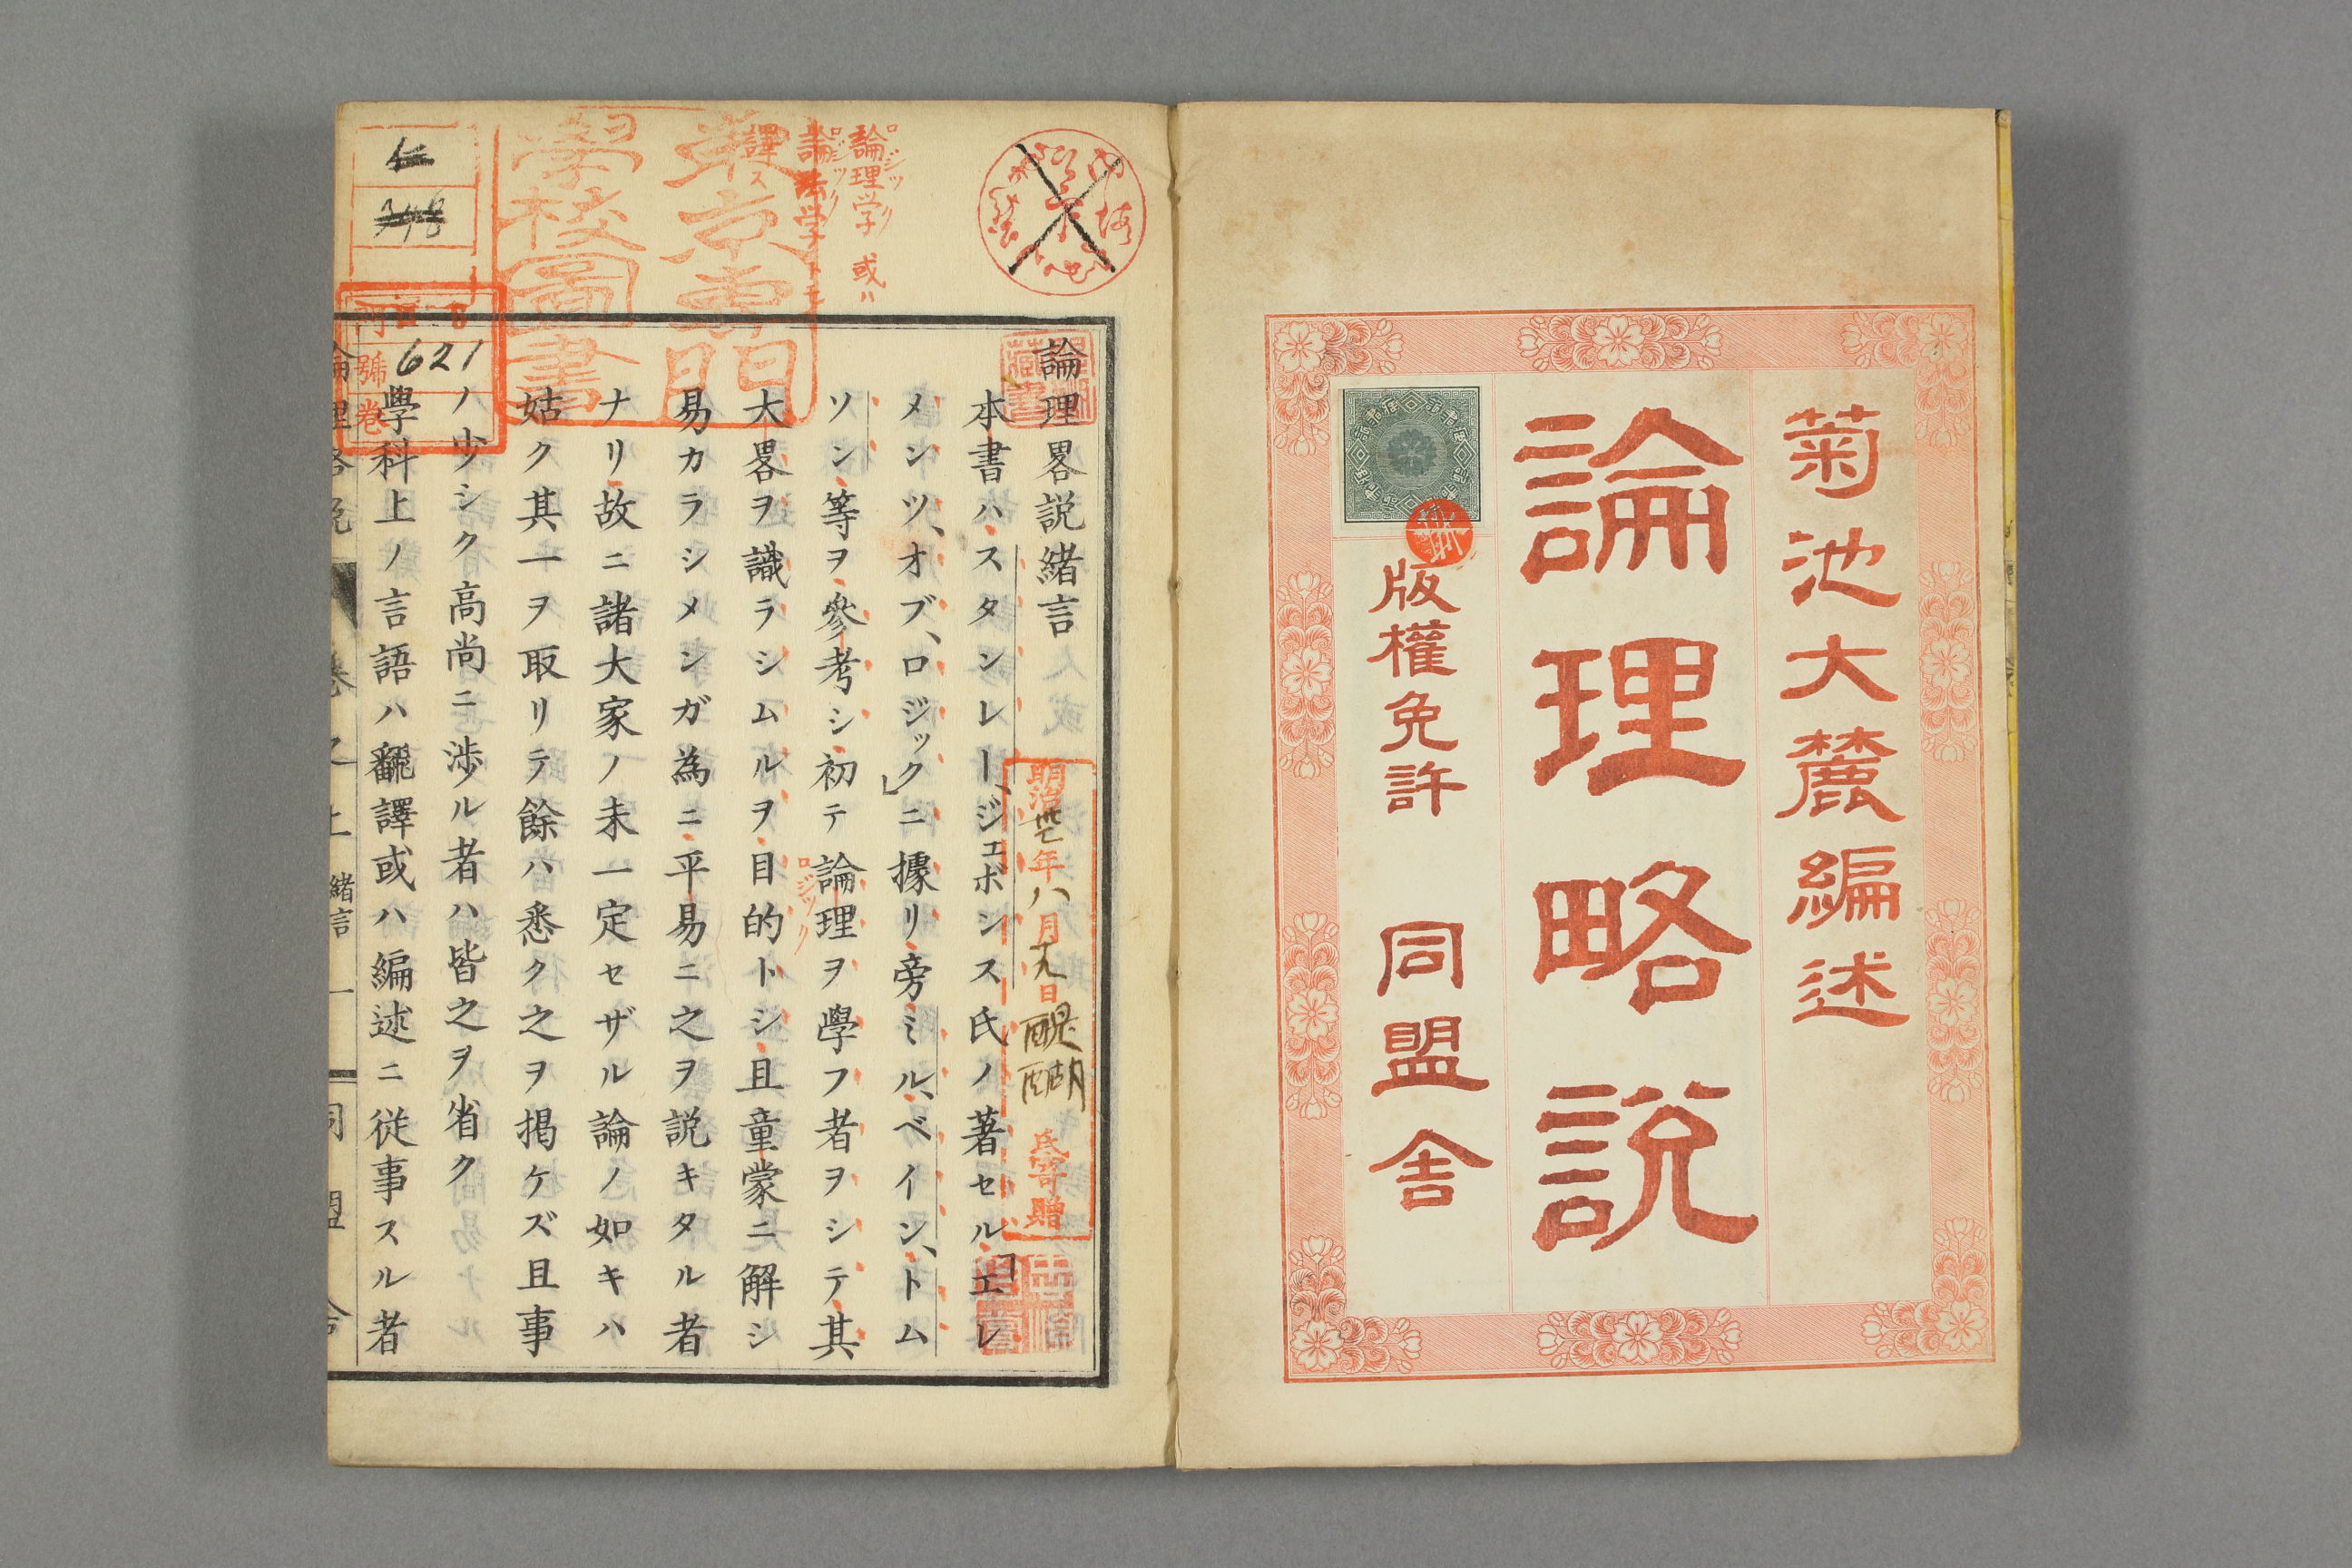 菊池大麓編述
論理略説
版權免許 同盟舎
論理畧説緒言
本書ハスタンレー、ジェボンス氏ノ著セル「エレ
メンツ、オブ、ロジック」ニ據リ旁ミル、ベイン、トム
ソン等ヲ參考シ初テ論理ヲ學フ者ヲシテ其
大畧ヲ識ラシムルヲ目的トシ且童蒙ニ解シ
易カラシメンガ為ニ平易ニ之ヲ説キタル者
ナリ故ニ諸大家ノ未一定セザル論ノ如キハ
姑ク其一ヲ取リテ餘ハ悉ク之ヲ掲ケズ且事
ノ少シク高尚ニ渉ル者ハ皆之ヲ省ク
學科上ノ言語ハ飜譯或ハ編述ニ従事スル者
論理学 或ハ
ロジック
論法学トモ
ロジック
譯ス
ロジック
東京專門
學校圖書
明治廿七年八月十九日
醍醐
氏寄贈
門
號 621
卷
緒言 一